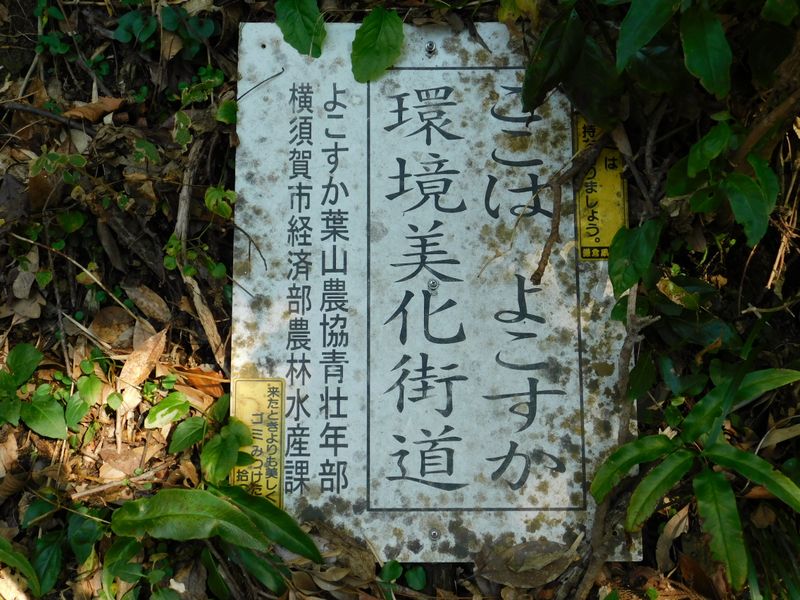 ここは よこすか
環境美化街道
よこすか葉山農協青壮年部
横須賀市経済部農林水産課
は
持
りましょう。
来たときよりお美しく
ゴミみつけた
拾